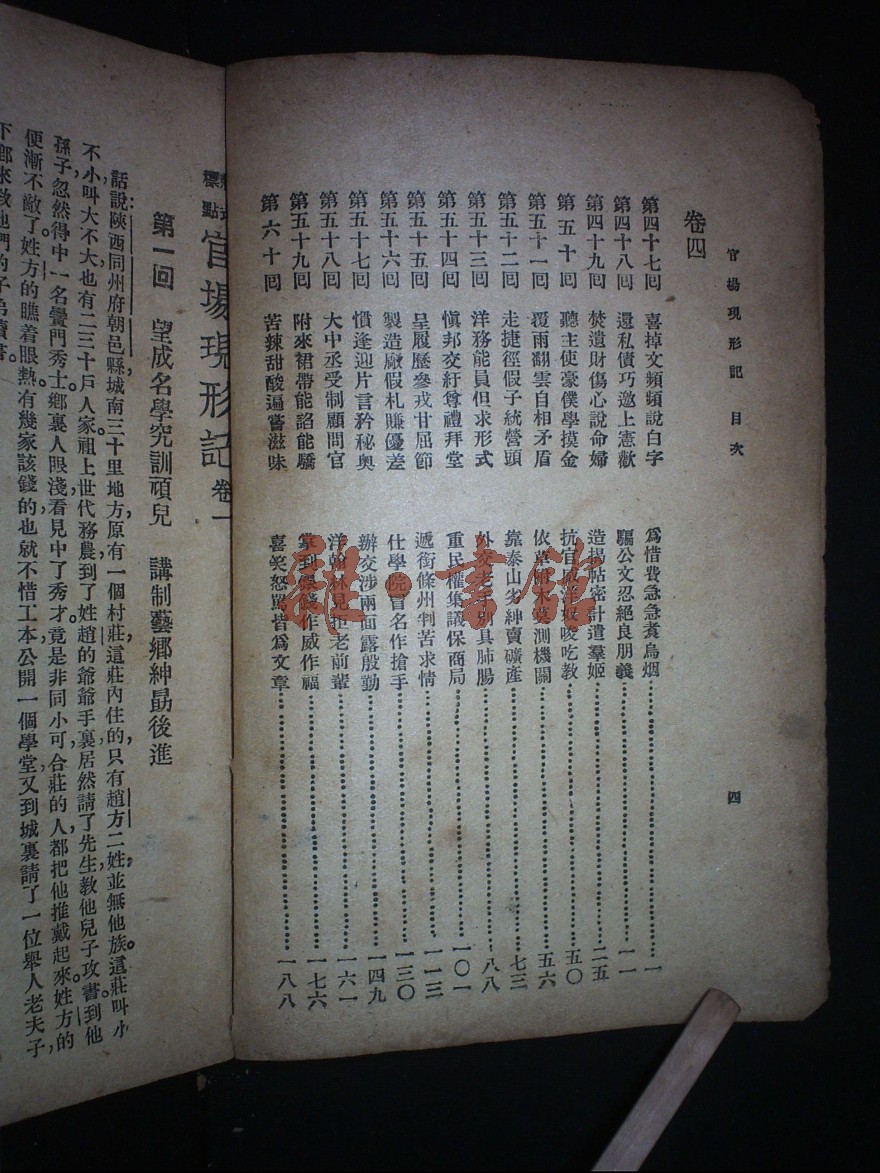 官場現形記 目次
四
卷四
第四十七回 喜掉文頻頻說白字 爲惜費急急煮烏烟 一
第四十八回 還私債巧邀上憲歡 騙公文忍絕良朋義 一一
第四十九回 焚遺財傷心說命婦 造揭帖密計遣羣姬 二五
第五十回 聽主使豪僕學摸金 抗官威洋奴唆吃教 五〇
第五十一回 覆雨翻雲自相矛盾 依草附木莫測機關 五六
第五十二回 走捷徑假子統營頭 靠泰山劣紳賣礦產 七三
第五十三回 洋務能員但求形式 外交老手別具肺腸 八八
第五十四回 愼邦交紆尊禮拜堂 重民權集議保商局 一〇一
第五十五回 呈履歷參戎甘屈節 遞銜條州判苦求情 一一三
第五十六回 製造廠假札賺優差 仕學院冒名作搶手 一三〇
第五十七回 慣逢迎片言矜秘奧 辦交涉兩面露殷勤 一四九
第五十八回 大中丞受制顧問官 洋翰林見拒老前輩 一六一
第五十九回 附來裙帶能諂能驕 掌到銀錢作威作福 一七六
第六十回 苦辣甜酸遍嘗滋味 喜笑怒罵皆爲文章 一八八
標點 官場現形記 卷一
第一回 望成名學究訓頑兒 講制藝鄉紳勗後進
話說陝西同州府朝邑縣城南三十里地方，原有一個村莊，這莊內住的，只有趙方二姓，並無他族。這莊叫小
不小，叫大不大，也有二三十戶人家。祖上世代務農。到了姓趙的爺爺手裏，居然請了先生，教他兒子攻書，到他
孫子，忽然得中一名黌門秀士。鄉裏人眼淺，看見中了秀才，竟是非同小可，合莊的人，都把他推戴起來。姓方的
便漸不敵了。姓方的瞧着眼熱，有幾家該錢的，也就不惜工本，公開一個學堂，又到城裏請了一位舉人老夫子，
下鄉來教他們的子弟讀書。
雜·書館